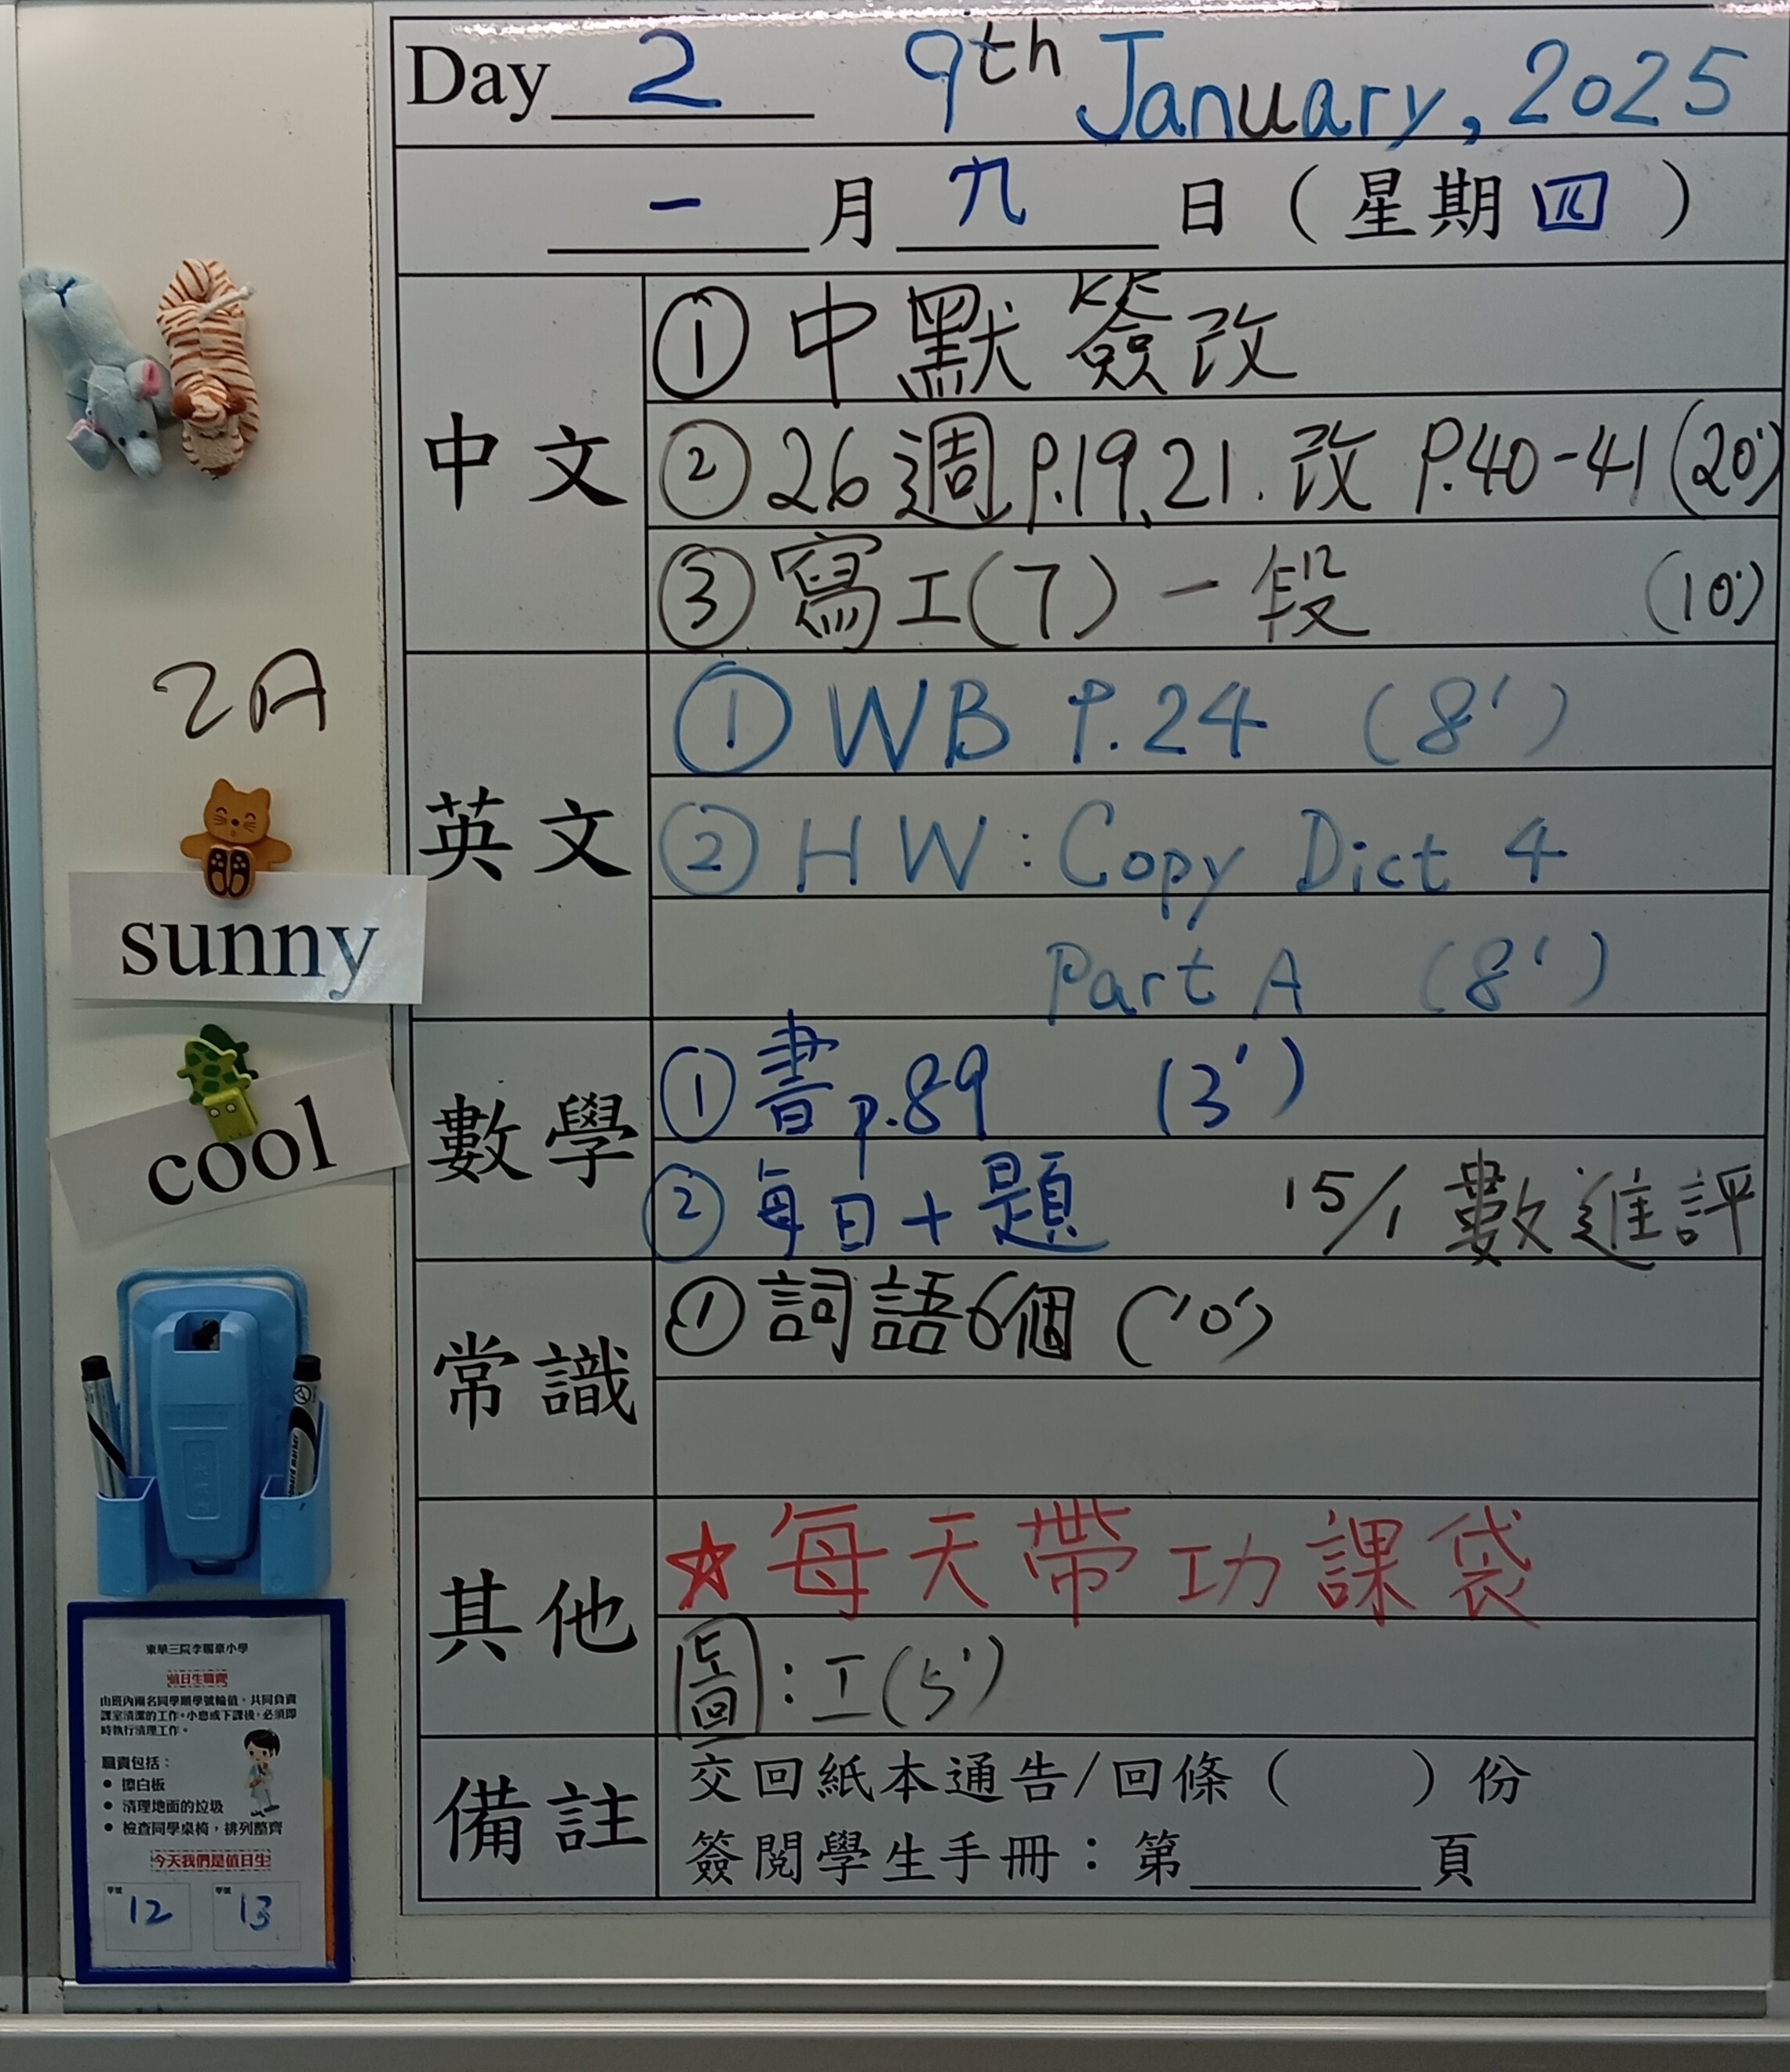 Day 2 9th January, 2025
一月九日（星期四）
中文
① 中默簽改
② 26週 P.19, 21. 改 P.40-41 (20')
③ 寫工(7) 一段 (10')
英文
① WB P.24 (8')
② HW: Copy Dict 4
Part A (8')
數學
① 書 p.89 (3')
② 每日十題 15/1 數進評
常識
① 詞語6個 (10')
其他
☆ 每天帶功課袋
圖：工(5')
備註
交回紙本通告/回條（ ）份
簽閱學生手冊：第______頁
2A
sunny
cool
東華三院李賜豪小學
值日生職責
由班內兩名同學順學號輪值，共同負責
課室清潔的工作。小息或下課後，必須即
時執行清理工作。
職責包括：
• 擦白板
• 清理地面的垃圾
• 檢查同學桌椅，排列整齊
今天我們是值日生
學號 學號
12 13